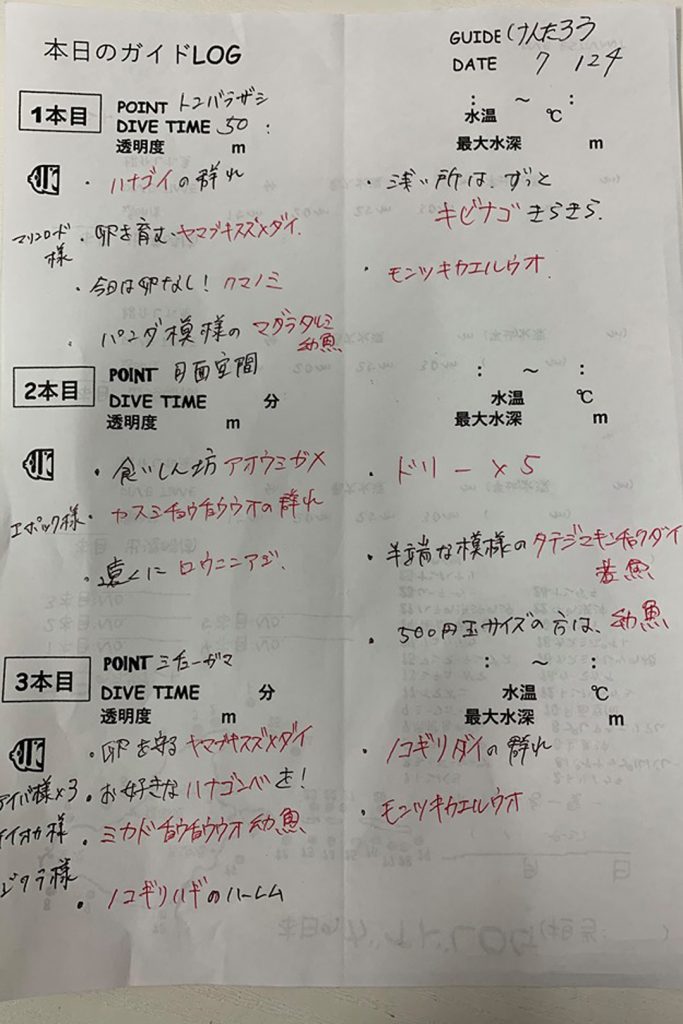 本日のガイドLOG
GUIDE けんたろう
DATE 7 124
1本目
POINT トンバラザシ
DIVE TIME 50 :
透明度 m
: ～ :
水温 ℃
最大水深 m
・ハナゴイの群れ
マリンロード様
・卵を育む ヤマブキスズメダイ.
・今日は卵なし! クマノミ
・パンダ模様の マダラタルミ
幼魚
・浅い所は、ずっと
キビナゴ きらきら.
・モンツキカエルウオ.
2本目
POINT 月面空間
DIVE TIME 分
透明度 m
: ～ :
水温 ℃
最大水深 m
・食いしん坊 アオウミガメ
エポック様
・ヤスミチョウチョウウオの群れ
・遠くに ロウニンアジ.
・ドリー×5
・半端な模様の タテジマキンチャクダイ
若魚
・500円玉サイズの方は、幼魚
3本目
POINT ミチューガマ
DIVE TIME 分
透明度 m
: ～ :
水温 ℃
最大水深 m
・卵を守る ヤマブキスズメダイ
アイバ様×3
・お好きな ハナゴンベを!
様
・ミカドチョウチョウウオ 幼魚
様
・ノコギリハギのハーレム
・ノコギリダイの群れ
・モンツキカエルウオ